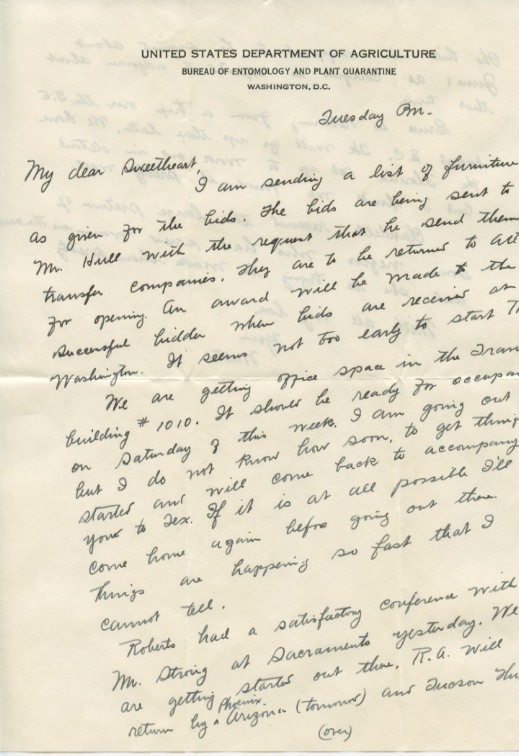 UNITED STATES DEPARTMENT OF AGRICULTURE
BUREAU OF ENTOMOLOGY AND PLANT QUARANTINE
WASHINGTON, D.C.
Tuesday Pm.
My dear Sweetheart,
I am sending a list of furniture
as given for the bids. The bids are being sent to
Mr. Hull with the request that he send them
transfer companies. They are to be returned to
for opening. An award will be made to the
successful bidder when bids are received at
Washington. It seems not too early to start
We are getting office space in the
building # 1010. It should be ready for
on Saturday of this week. I am going out
but I do not know how soon, to get things
started and will come back to accompany
your to Tex. If it is at all possible I'll
come home again before going out there.
Things are happening so fast that I
cannot tell.
Roberts had a satisfactory conference with
Mr. Strong at Sacramento yesterday. We
are getting started out there. R.A. will
return by Phoenix Arizona (tomorrow) and Tucson
(over)